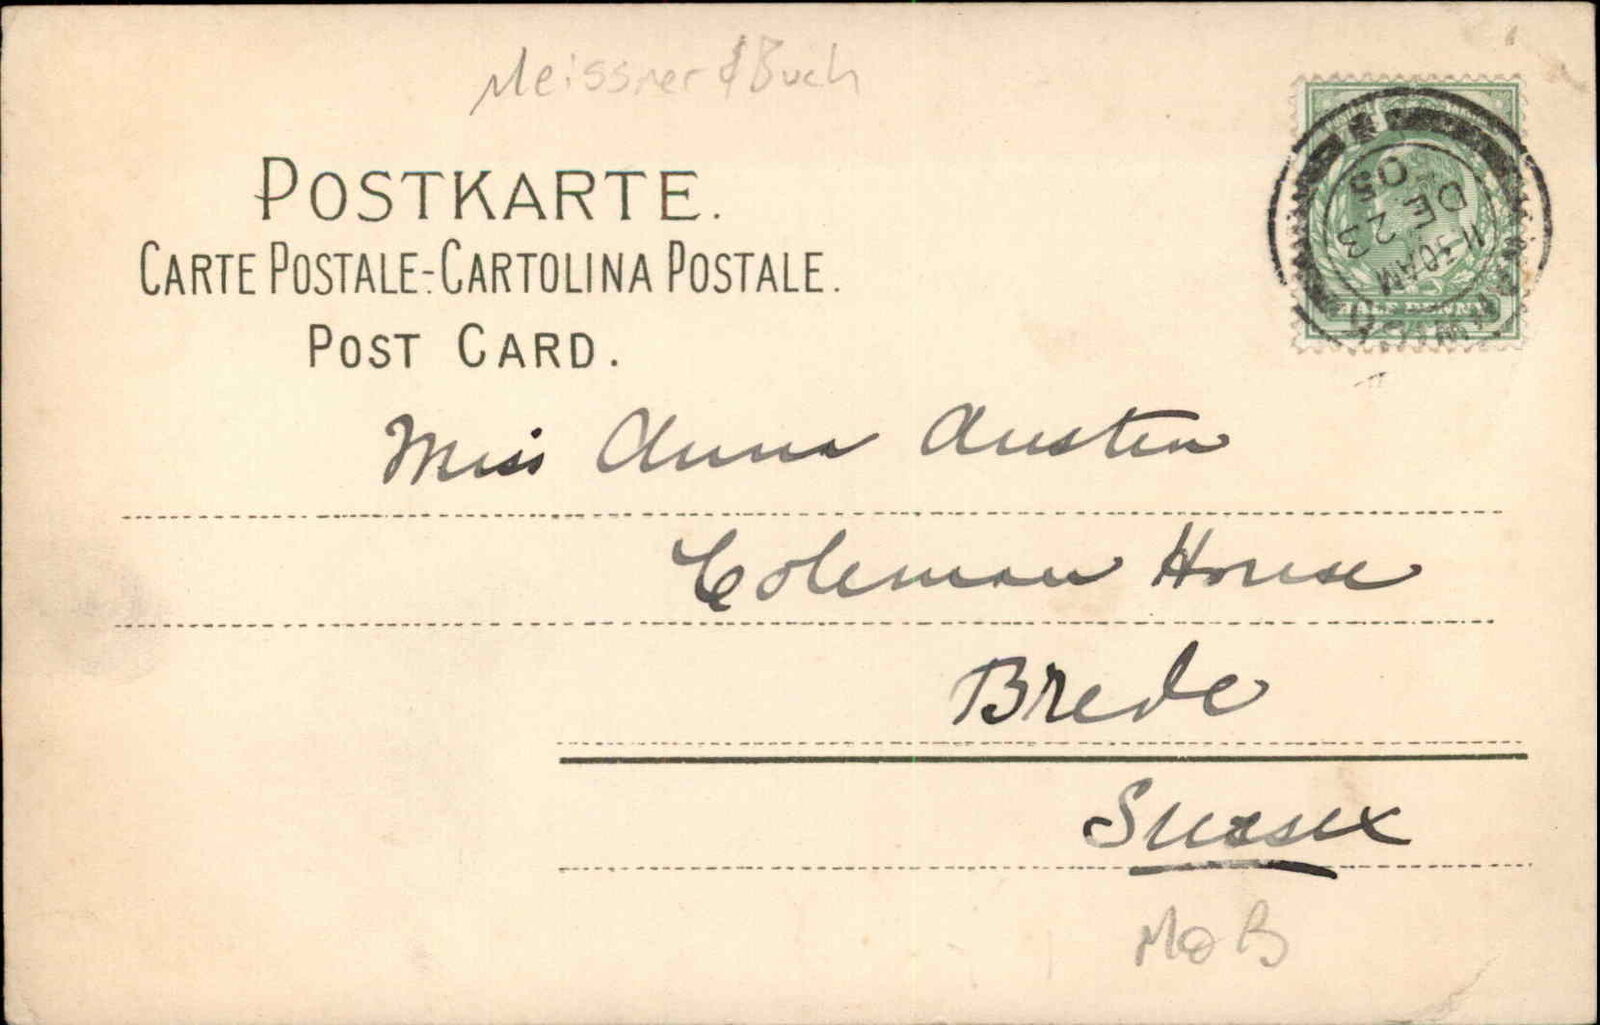 Meissner & Buch
POSTKARTE.
CARTE POSTALE-CARTOLINA POSTALE.
POST CARD.
11-30AM
DE 23
05
Miss Anna Austen
Coleman House
Brede
Sussex
M & B